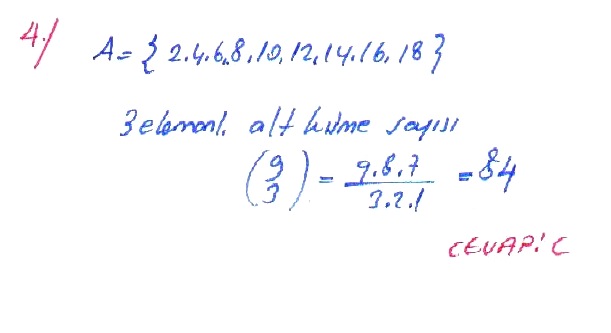 4./
A = {2,4,6,8,10,12,14,16,18}
3 elemanlı alt küme sayısı
(9 3) = 9.8.7 / 3.2.1 = 84
CEVAP: C